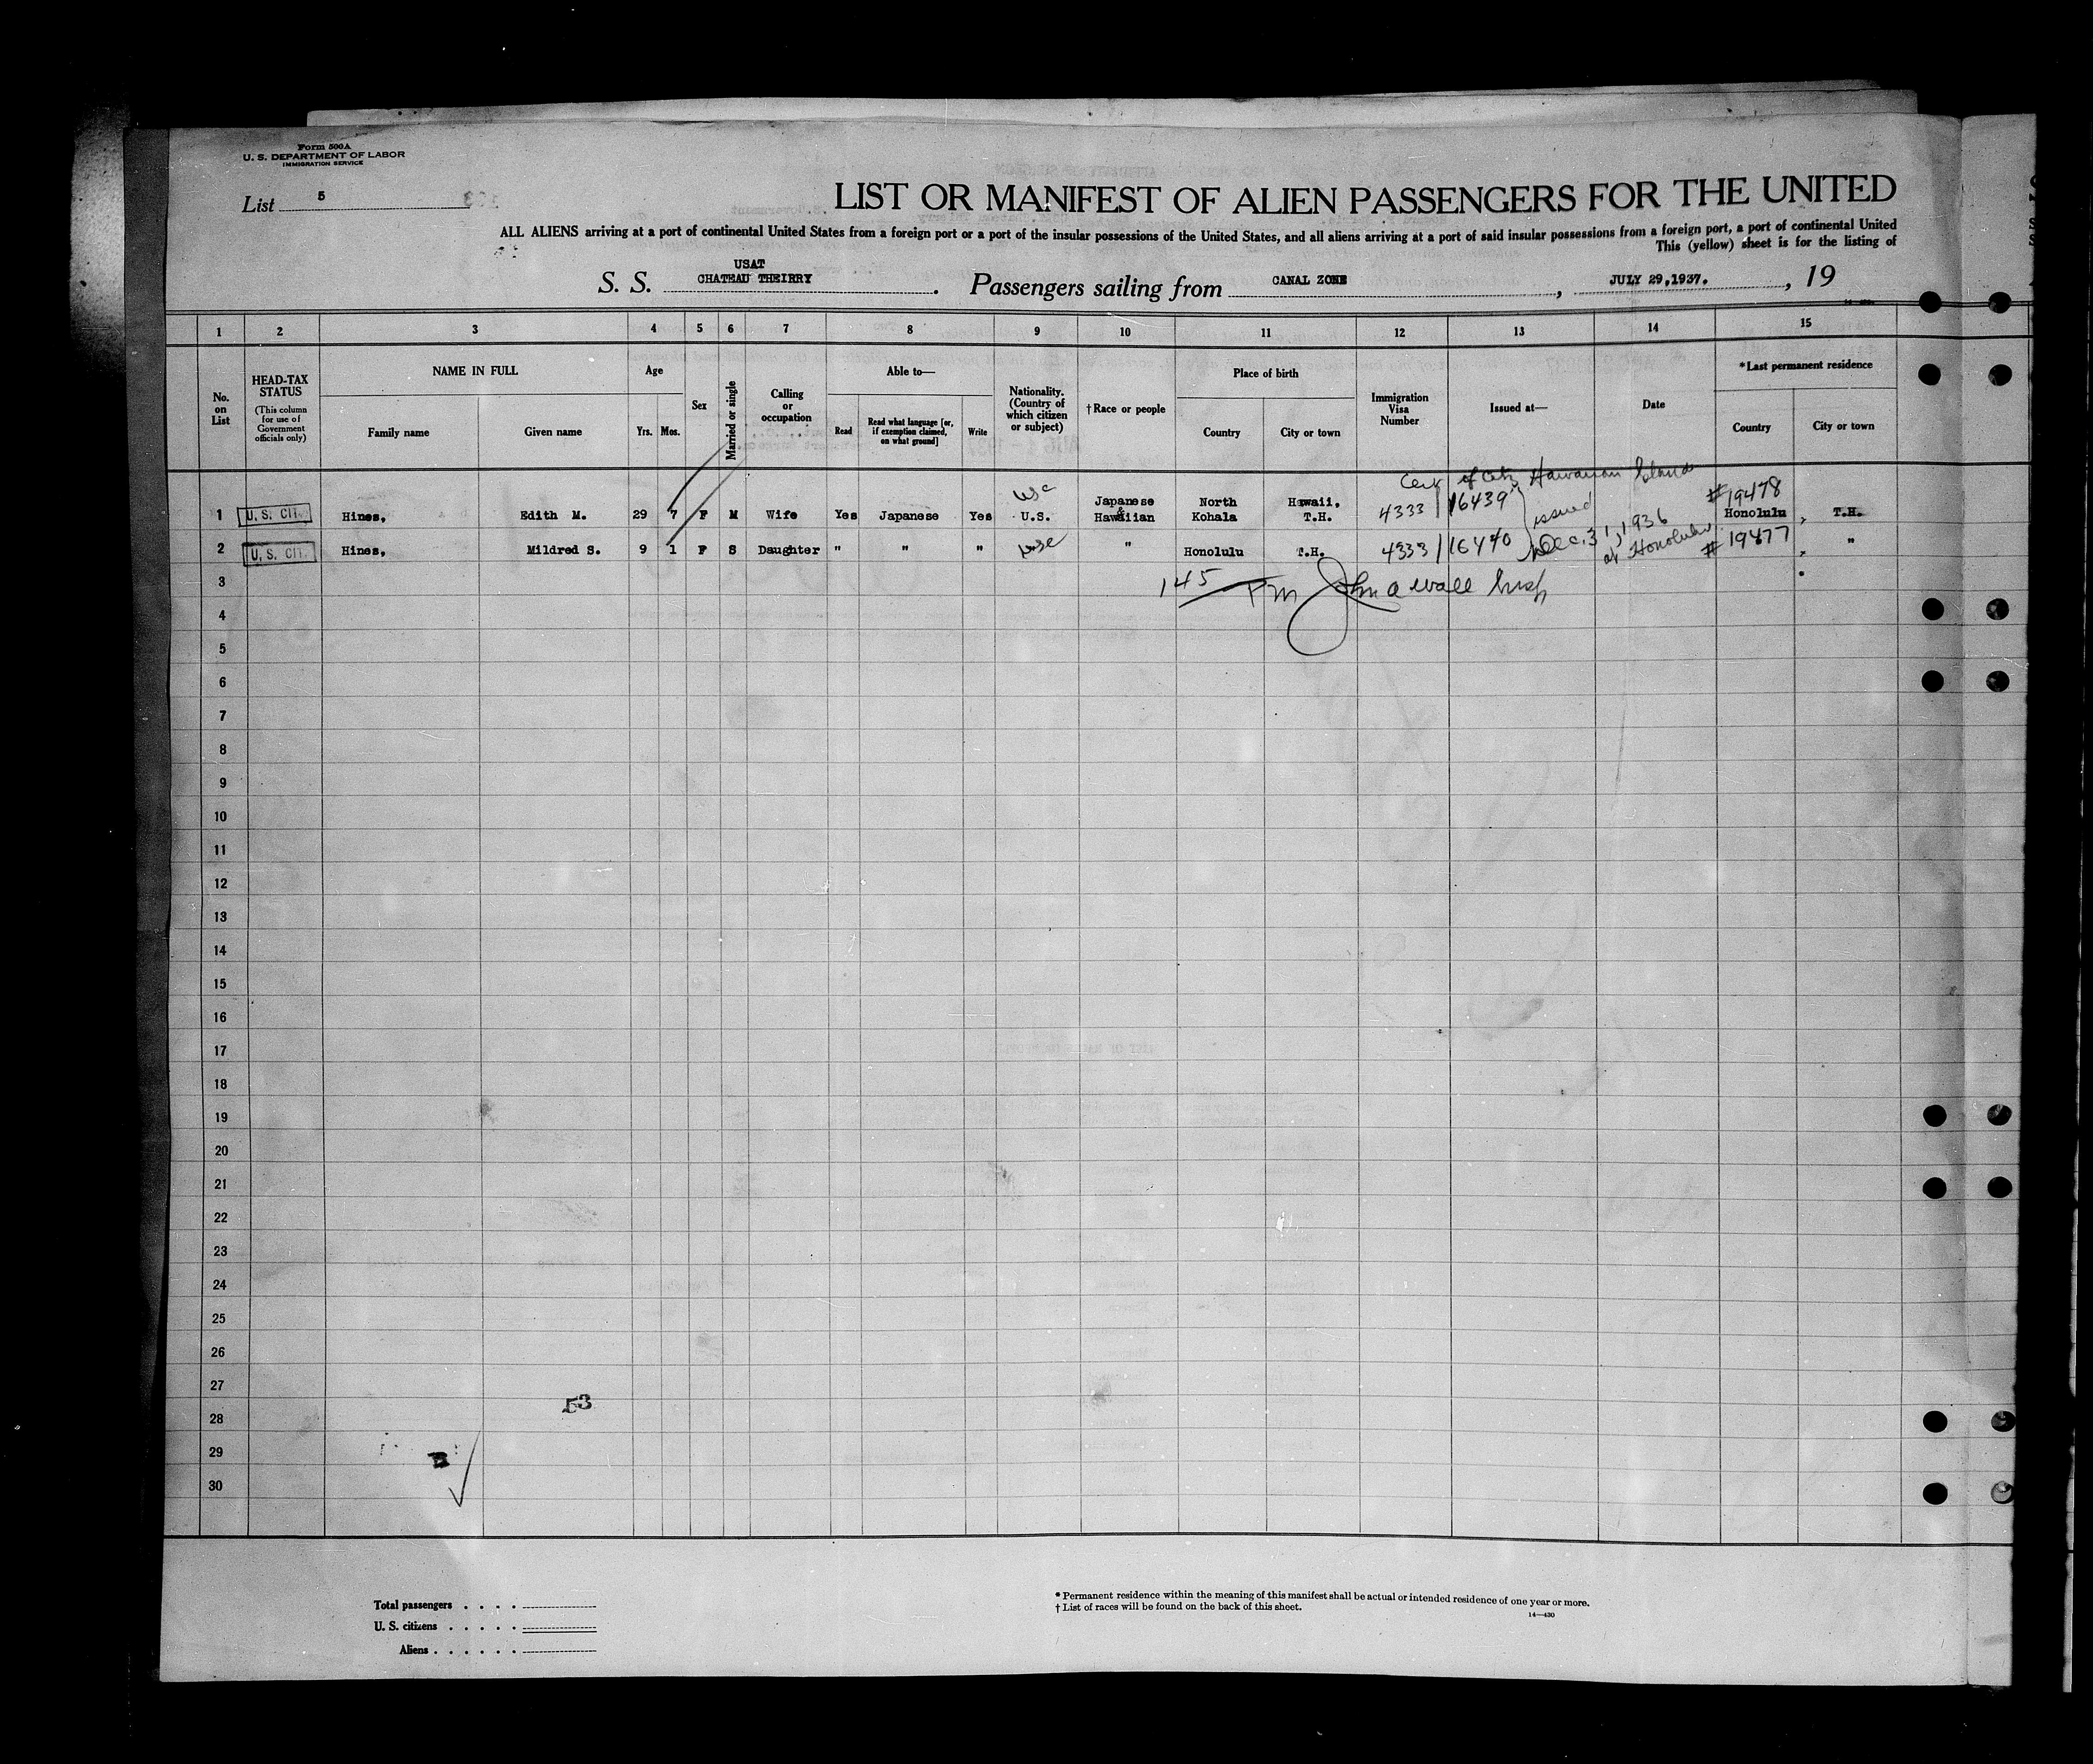 Form 500A
U. S. DEPARTMENT OF LABOR
IMMIGRATION SERVICE
List 5
LIST OR MANIFEST OF ALIEN PASSENGERS FOR THE UNITED
ALL ALIENS arriving at a port of continental United States from a foreign port or a port of the insular possessions of the United States, and all aliens arriving at a port of said insular possessions from a foreign port, a port of continental United
This (yellow) sheet is for the listing of
USAT
S. S. CHATEAU THEIRRY. Passengers sailing from CANAL ZONE, JULY 29,1937., 19
1 2 3 4 5 6 7 8 9 10 11 12 13 14 15
No. on List
HEAD-TAX STATUS
(This column for use of Government officials only)
NAME IN FULL
Family name Given name
Age
Yrs. Mos.
Sex
Married or single
Calling or occupation
Able to—
Read
Read what language [or, if exemption claimed, on what ground]
Write
Nationality. (Country of which citizen or subject)
†Race or people
Place of birth
Country City or town
Immigration Visa Number
Issued at—
Date
*Last permanent residence
Country City or town
Cert of Citz Hawaiian Islands
1 U. S. CIT. Hines, Edith M. 29 7 F M Wife Yes Japanese Yes usc U.S. Japanese & Hawaiian North Kohala Hawaii, T.H. 4333/16439 issued #19478 Honolulu, T.H.
2 U. S. CIT. Hines, Mildred S. 9 1 F S Daughter " " " usc " Honolulu T.H. 4333/16440 Dec. 31, 1936 at Honolulu #19477 , "
3 145 Pm John A Wall Insp
4
5
6
7
8
9
10
11
12
13
14
15
16
17
18
19
20
21
22
23
24
25
26
27
53
28
29
30
Total passengers
U. S. citizens
Aliens
* Permanent residence within the meaning of this manifest shall be actual or intended residence of one year or more.
† List of races will be found on the back of this sheet.
14—430